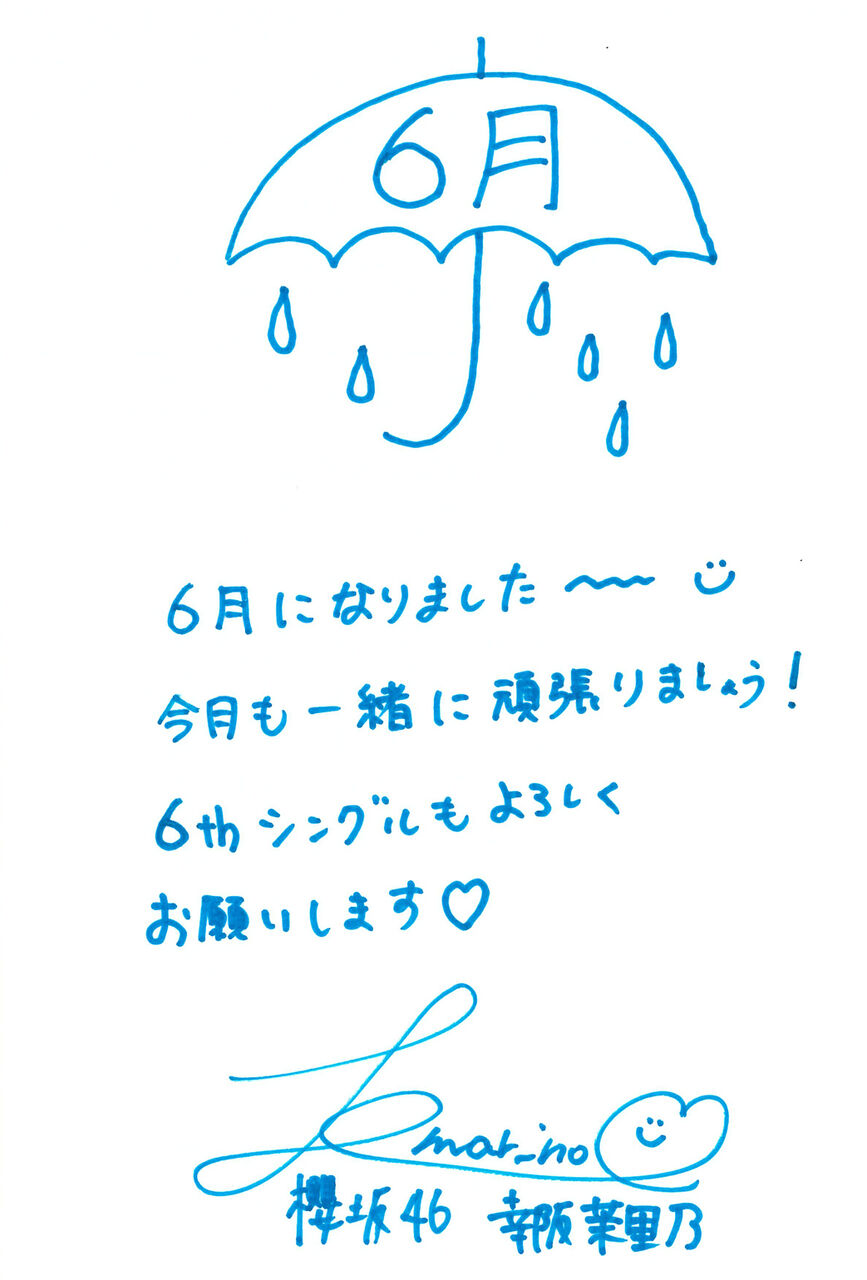 6月
6月になりました〜〜
今月も一緒に頑張りましょう!
6thシングルもよろしく
お願いします♡
marino
櫻坂46 幸阪茉里乃